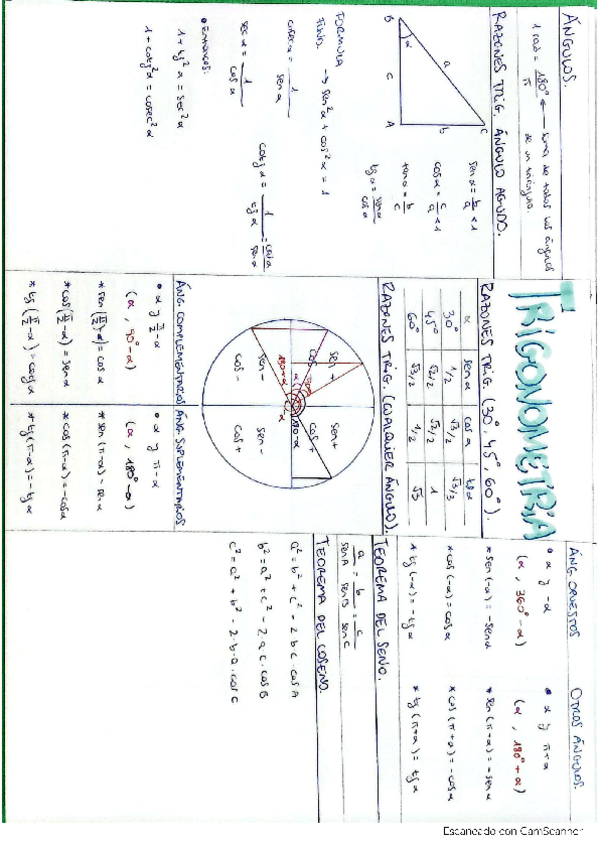 TRIGONOMETRÍA
ÁNGULOS.
1 rad = 180° / π ← suma de todos los ángulos
de un triángulo.
RAZONES TRIG. ÁNGULO AGUDO.
B
α
a
c
A
b
C
sen α = b/a < 1
cos α = c/a < 1
tan α = b/c
tg α = sen α / cos α
FÓRMULA
FUND. → sen² α + cos² α = 1
cosec α = 1 / sen α
sec α = 1 / cos α
cotg α = 1 / tg α = cos α / sen α
• ENTONCES:
1 + tg² α = sec² α
1 + cotg² α = cosec² α
RAZONES TRIG. (30°, 45°, 60°).
α sen α cos α tg α
30° 1/2 √3/2 √3/3
45° √2/2 √2/2 1
60° √3/2 1/2 √3
RAZONES TRIG. (CUALQUIER ÁNGULO).
sen +
cos +
sen +
cos +
sen -
cos -
sen -
cos +
180-α
ÁNG. COMPLEMENTARIOS
• α y π/2 - α
(α, 90° - α)
* sen(π/2 - α) = cos α
* cos(π/2 - α) = sen α
* tg(π/2 - α) = cotg α
ÁNG. SUPLEMENTARIOS
• α y π - α
(α, 180° - α)
* sen(π - α) = sen α
* cos(π - α) = -cos α
* tg(π - α) = -tg α
ÁNG. OPUESTOS
• α y -α
(α, 360° - α)
* sen(-α) = -sen α
* cos(-α) = cos α
* tg(-α) = -tg α
OTROS ÁNGULOS.
• α y π + α
(α, 180° + α)
* sen(π + α) = -sen α
* cos(π + α) = -cos α
* tg(π + α) = tg α
TEOREMA DEL SENO.
a / sen A = b / sen B = c / sen C
TEOREMA DEL COSENO.
a² = b² + c² - 2·b·c·cos A
b² = a² + c² - 2·a·c·cos B
c² = a² + b² - 2·b·a·cos C
Escaneado con CamScanner